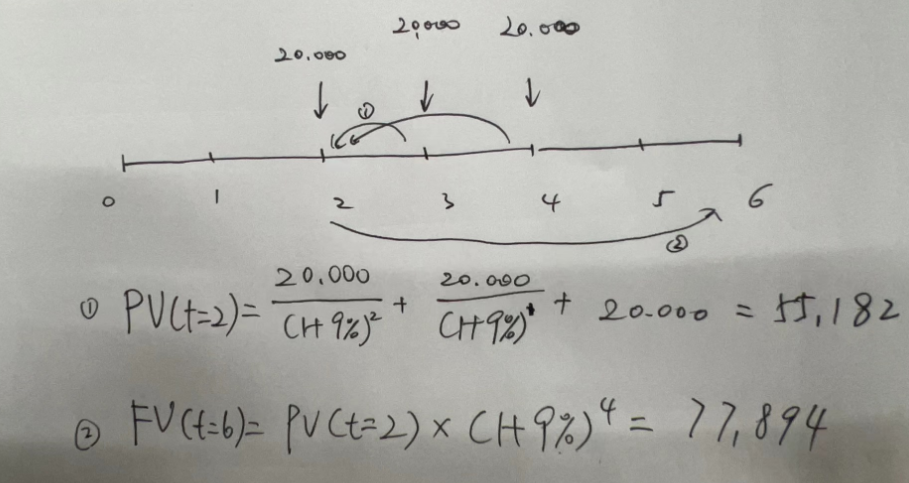 20,000 20,000
20.000
①
0 1 2 3 4 5 6
②
① PV(t=2)= 20.000/(1+9%)² + 20.000/(1+9%)¹ + 20.000 = 55,182
② FV(t=6)= PV(t=2) × (1+9%)⁴ = 77,894